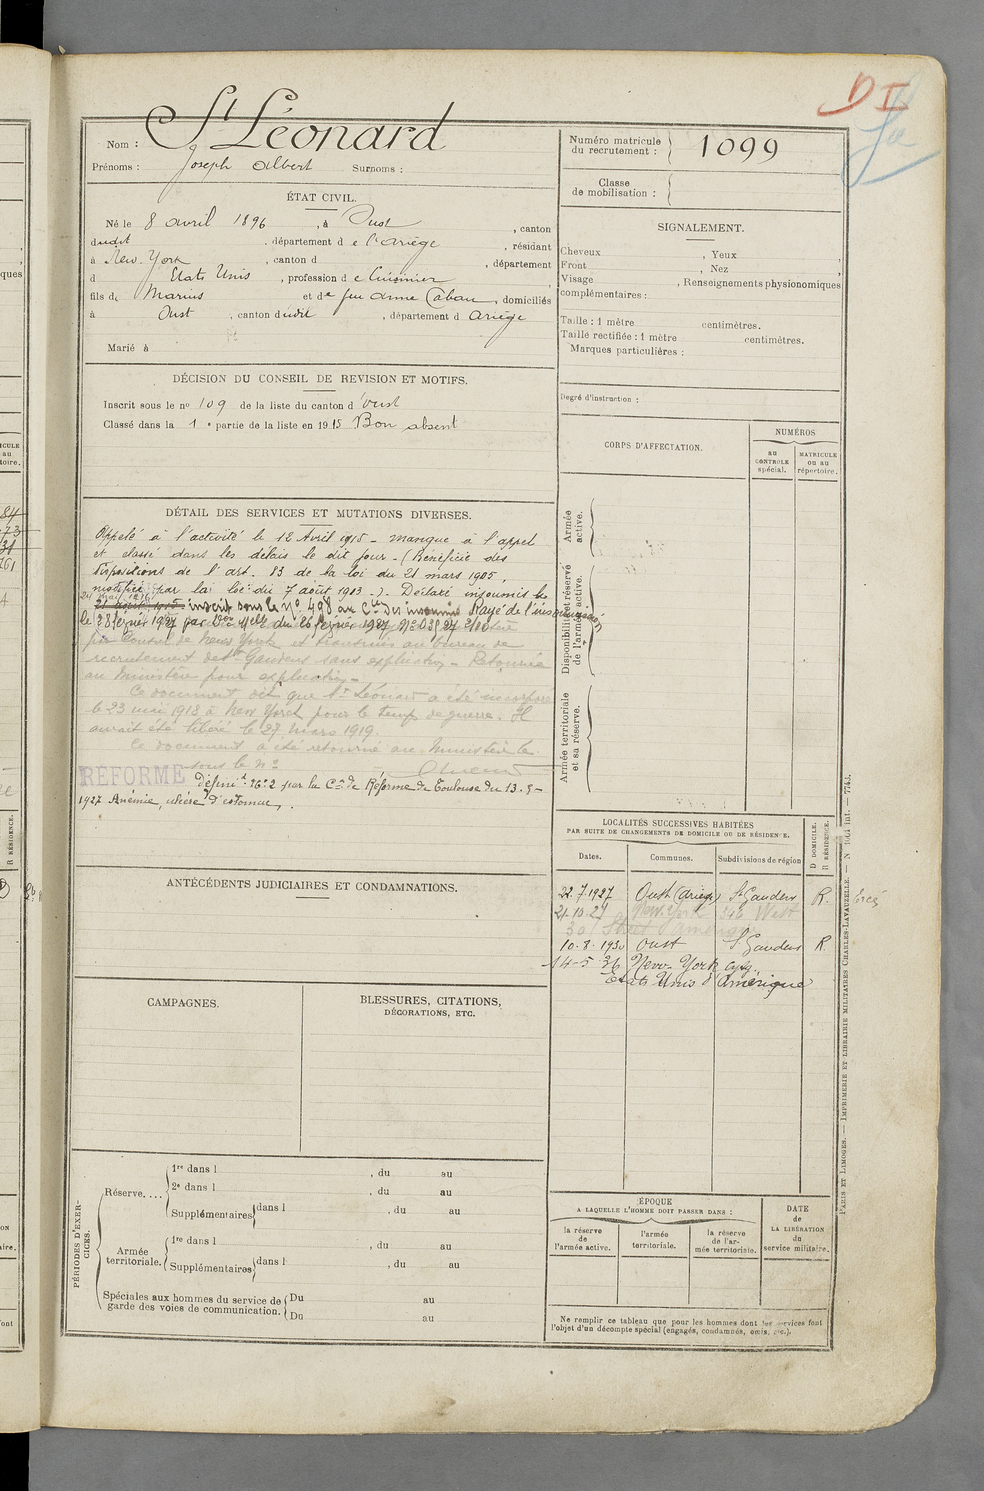 D I
Nom : St Léonard
Prénoms : Joseph Albert Surnoms :
Numéro matricule du recrutement : 1099
Classe de mobilisation :
ÉTAT CIVIL.
Né le 8 avril 1896, à Oust, canton
dudit, département de l'Ariège, résidant
à New-York, canton d , département
d Etats Unis, profession de Cuisinier
fils de Marius et de feu Anne Cabau, domiciliés
à Oust, canton dudit, département d Ariège
Marié à
SIGNALEMENT.
Cheveux , Yeux
Front , Nez
Visage , Renseignements physionomiques
complémentaires :
Taille : 1 mètre centimètres.
Taille rectifiée : 1 mètre centimètres.
Marques particulières :
Degré d'instruction :
DÉCISION DU CONSEIL DE REVISION ET MOTIFS.
Inscrit sous le no 109 de la liste du canton d'Oust
Classé dans la 1e partie de la liste en 1915 Bon absent
CORPS D'AFFECTATION.
NUMÉROS
au CONTROLE spécial.
MATRICULE ou au répertoire.
Armée active.
Disponibilité et réserve de l'armée active.
Armée territoriale et sa réserve.
DÉTAIL DES SERVICES ET MUTATIONS DIVERSES.
Appelé à l'activité le 12 Avril 1915 - manque à l'appel
et classé dans les délais le dit jour - (Bénéficie des
dispositions de l'art. 83 de la loi du 21 mars 1905,
modifiée par la loi du 7 août 1913 -). Déclaré insoumis le
inscrit sous le No 498 au Cle des insoumis Rayé de l'insoumission
le 28 février 1927 par Don Mlle du 26 février 1927 No
par Consul de New York et transmis au bureau de
recrutement de St Gaudens sans explication - Retournée
au Ministère pour explication -
Ce document dit que St Léonard a été incorporé
le 23 mai 1918 à New York pour le temps de guerre. Il
aurait été libéré le 27 mars 1919.
Ce document a été retourné au Ministère le
sous le no
RÉFORMÉ définit No 2 par la Con de Réforme de Toulouse du 13-5-
1927 Anémie, ulcère d'estomac.
LOCALITÉS SUCCESSIVES HABITÉES
PAR SUITE DE CHANGEMENTS DE DOMICILE OU DE RÉSIDENCE.
Dates. Communes. Subdivisions de région
D DOMICILE. R RÉSIDENCE.
22.7.1927 Oust (Ariège) St Gaudens R.
21-10-27 New-York 346 West
30 Street Amérique
10-8-1930 Oust St Gaudens R
14-5-36 New-York
Etats Unis d'Amérique
ANTÉCÉDENTS JUDICIAIRES ET CONDAMNATIONS.
CAMPAGNES.
BLESSURES, CITATIONS, DÉCORATIONS, ETC.
PÉRIODES D'EXERCICES.
Réserve....
1re dans l , du au
2e dans l , du au
Supplémentaires dans l , du au
Armée territoriale.
1re dans l , du au
Supplémentaires dans l , du au
Spéciales aux hommes du service de garde des voies de communication.
Du au
Du au
ÉPOQUE
A LAQUELLE L'HOMME DOIT PASSER DANS :
la réserve de l'armée active.
l'armée territoriale.
la réserve de l'armée territoriale.
DATE de LA LIBÉRATION du service militaire.
Ne remplir ce tableau que pour les hommes dont les services font
l'objet d'un décompte spécial (engagés, condamnés, omis, etc.).
PARIS ET LIMOGES. — IMPRIMERIE ET LIBRAIRIE MILITAIRES CHARLES-LAVAUZELLE.